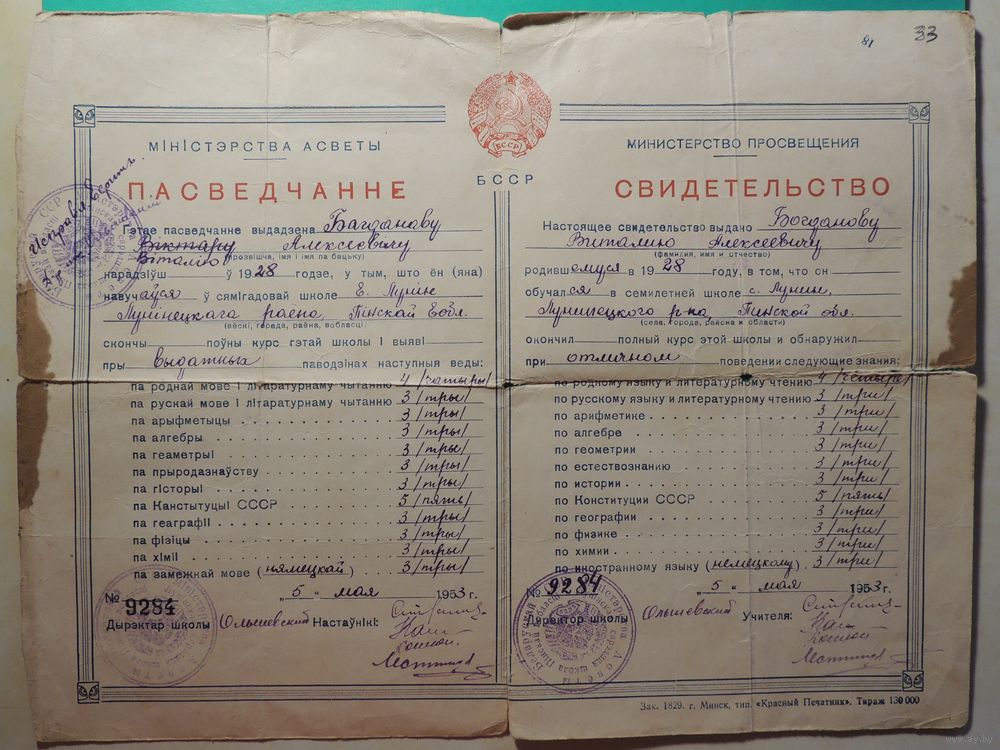 81 33
БССР
БССР
МІНІСТЭРСТВА АСВЕТЫ
ПАСВЕДЧАННЕ
Исправл. Верить.
Гэтае пасведчанне выдадзена Багданаву
Віктару Алексеевічу
Віталію (прозвішча, імя і імя па бацьку)
нарадзіўш ў 1928 годзе, у тым, што ён (яна)
навучаўся ў сямігадовай школе в. Лунін
Лунінецкага раена, Пінскай вобл.
(вёскі, горада, раёна, вобласці)
скончы поўны курс гэтай школы і выявіў
пры выдатных паводзінах наступныя веды:
па роднай мове і літаратурнаму чытанню 4 /чатыры/
па рускай мове і літаратурнаму чытанню 3 /тры/
па арыфметыцы 3 /тры/
па алгебры 3 /тры/
па геаметрыі 3 /тры/
па прыродазнаўству 3 /тры/
па гісторыі 3 /тры/
па Канстытуцыі СССР 5 /пять/
па геаграфіі 3 /тры/
па фізіцы 3 /тры/
па хіміі 3 /тры/
па замежнай мове (нямецкай) 3 /тры/
„5" мая 1953 г.
№ 9284
Дырэктар школы Ольшевский Настаўнікі:
МИНИСТЕРСТВО ПРОСВЕЩЕНИЯ
СВИДЕТЕЛЬСТВО
Настоящее свидетельство выдано Богданову
Виталию Алексеевичу
(фамилия, имя и отчество)
родившемуся в 1928 году, в том, что он
обучался в семилетней школе с. Лунин,
Лунинецкого р-на, Пинской обл.
(села, города, района и области)
окончил полный курс этой школы и обнаружил
при отличном поведении следующие знания:
по родному языку и литературному чтению 4 /четыре/
по русскому языку и литературному чтению 3 /три/
по арифметике 3 /три/
по алгебре 3 /три/
по геометрии 3 /три/
по естествознанию 3 /три/
по истории 3 /три/
по Конституции СССР 5 /пять/
по географии 3 /три/
по физике 3 /три/
по химии 3 /три/
по иностранному языку (немецкому) 3 /три/
„5" мая 1953 г.
№ 9284
Директор школы Ольшевский Учителя:
Зак. 1829. г. Минск, тип. «Красный Печатник». Тираж 130 000
www.ay.by